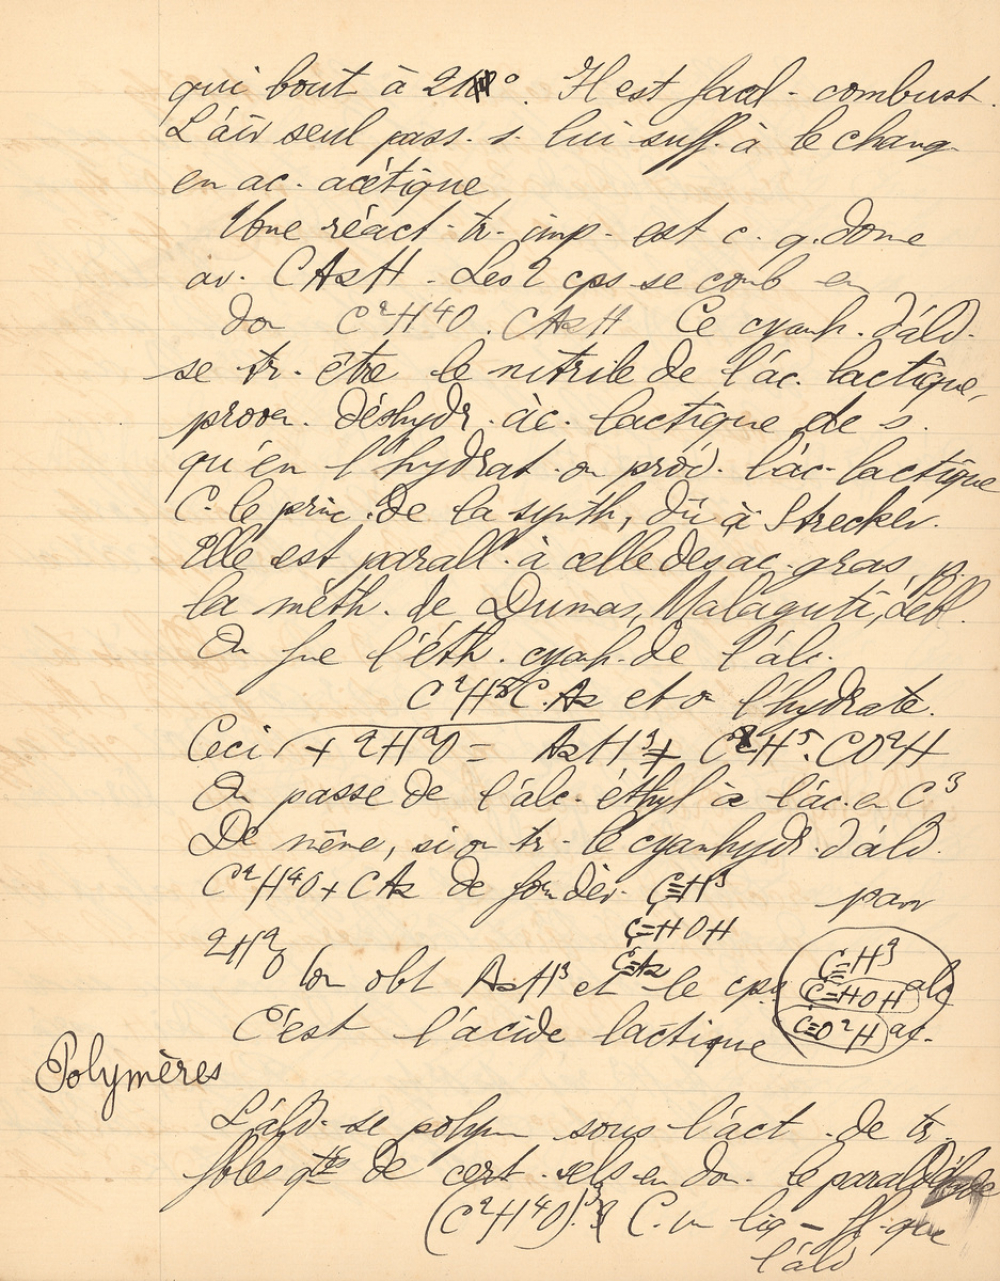 qui bout à 21°. Il est facil - combust.
L'air seul pass. s. lui suff. à le chang
en ac. acétique
Une réact. tr. imp. est c. q. done
av. CAzH. Les 2 cps se comb en
don C²H⁴O. CAzH Ce cyanh. d'ald.
se tr. être le nitrile de l'ac. lactique,
proven. déshydr. ac. lactique de s.
qu'en l'hydrat. on prod. l'ac. lactique
C. le princ. de la synth, dû à Strecker.
Elle est parall. à celle des ac. gras, p.
la méth. de Dumas, Malaguti, Lebl.
On fre l'éth. cyanh. de l'alc.
C²H⁵C.Az et on l'hydrate.
Ceci + 2H²O = AzH³ + C²H⁵.CO²H
On passe de l'alc. éthyl à l'ac. en C³
De même, si on tr. le cyanhydr. d'ald.
C²H⁴O + CAz de CH³ par
CHOH
2H²O CAz CH³
on obt AzH³ et le cps CHOH alc
C'est l'acide lactique CO²H ac.
Polymères
L'ald. se polym sous l'act. de tr.
fbles qtés de cert. sels en don. le paraldéhyde
(C²H⁴O)³. C. un liq - ff. que
l'ald